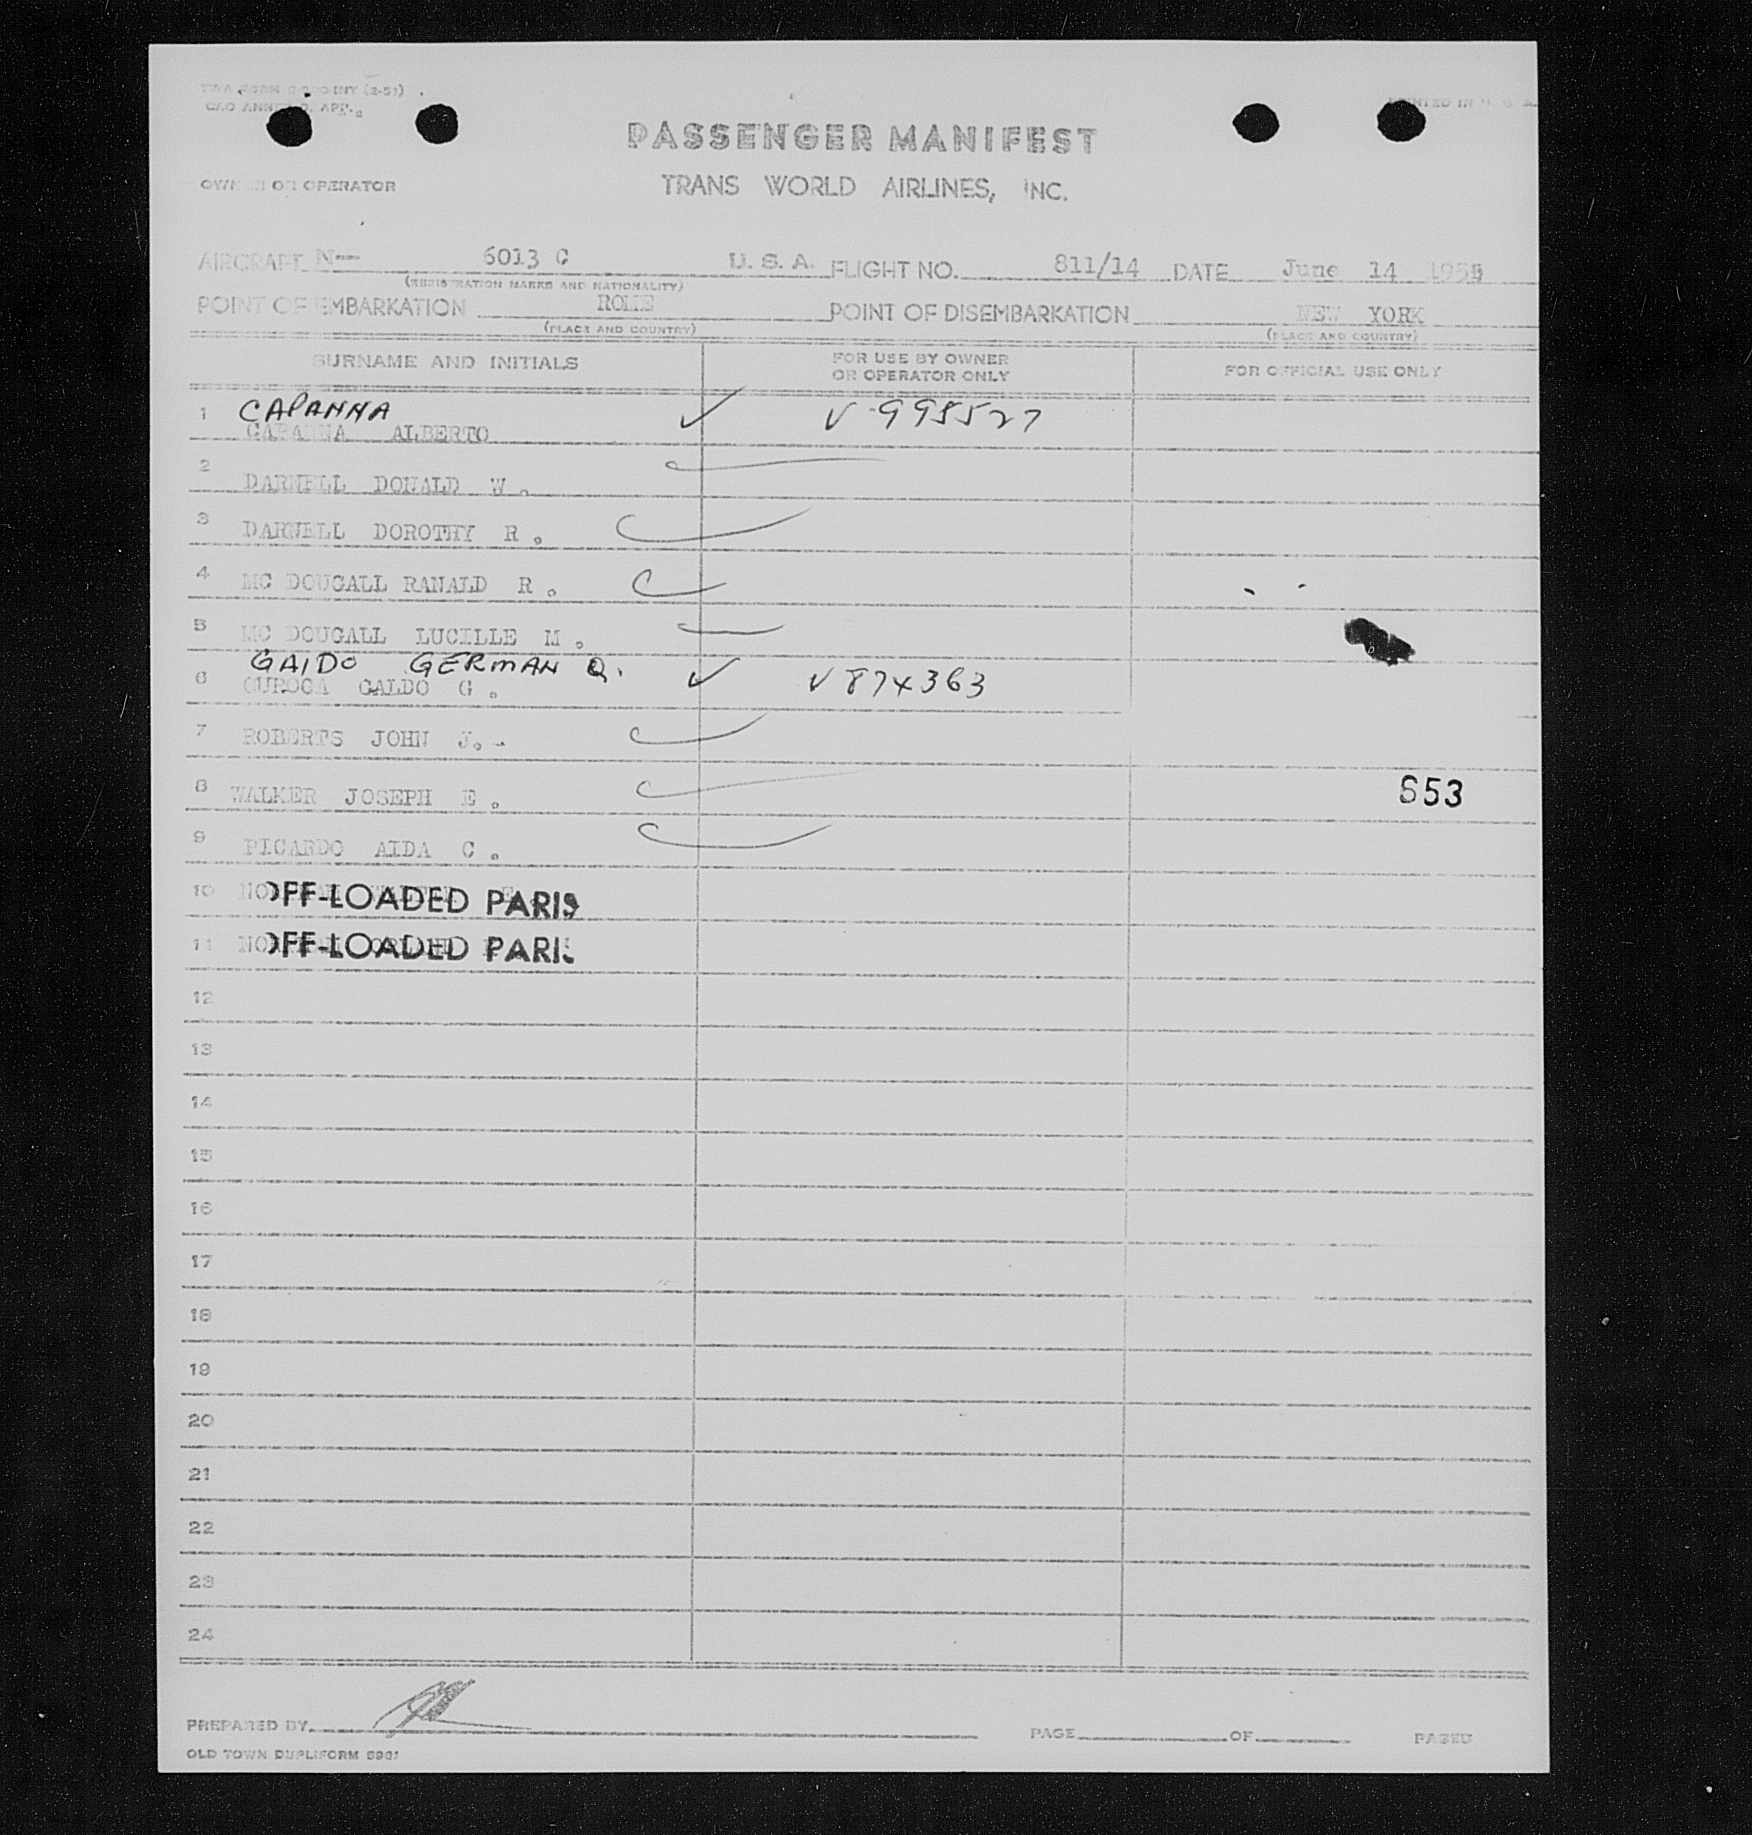 PASSENGER MANIFEST
OWNER OR OPERATOR TRANS WORLD AIRLINES, INC.
AIRCRAFT N-- 6013 C U. S. A. FLIGHT NO. 811/14 DATE June 14 1955
(REGISTRATION MARKS AND NATIONALITY)
POINT OF EMBARKATION ROME POINT OF DISEMBARKATION NEW YORK
(PLACE AND COUNTRY) (PLACE AND COUNTRY)
SURNAME AND INITIALS FOR USE BY OWNER OR OPERATOR ONLY FOR OFFICIAL USE ONLY
CAPANNA
1 CAPANNA ALBERTO V-995527
2 DARNELL DONALD W.
3 DARNELL DOROTHY R.
4 MC DOUGALL RANALD R.
5 MC DOUGALL LUCILLE M.
GAIDO GERMAN Q.
6 GALDO G. V874363
7 ROBERTS JOHN J.
8 WALKER JOSEPH E. 853
9 PICARDO AIDA C.
10 OFF-LOADED PARIS
11 OFF-LOADED PARIS
12
13
14
15
16
17
18
19
20
21
22
23
24
PREPARED BY PAGE OF PAGES
OLD TOWN DUPLIFORM